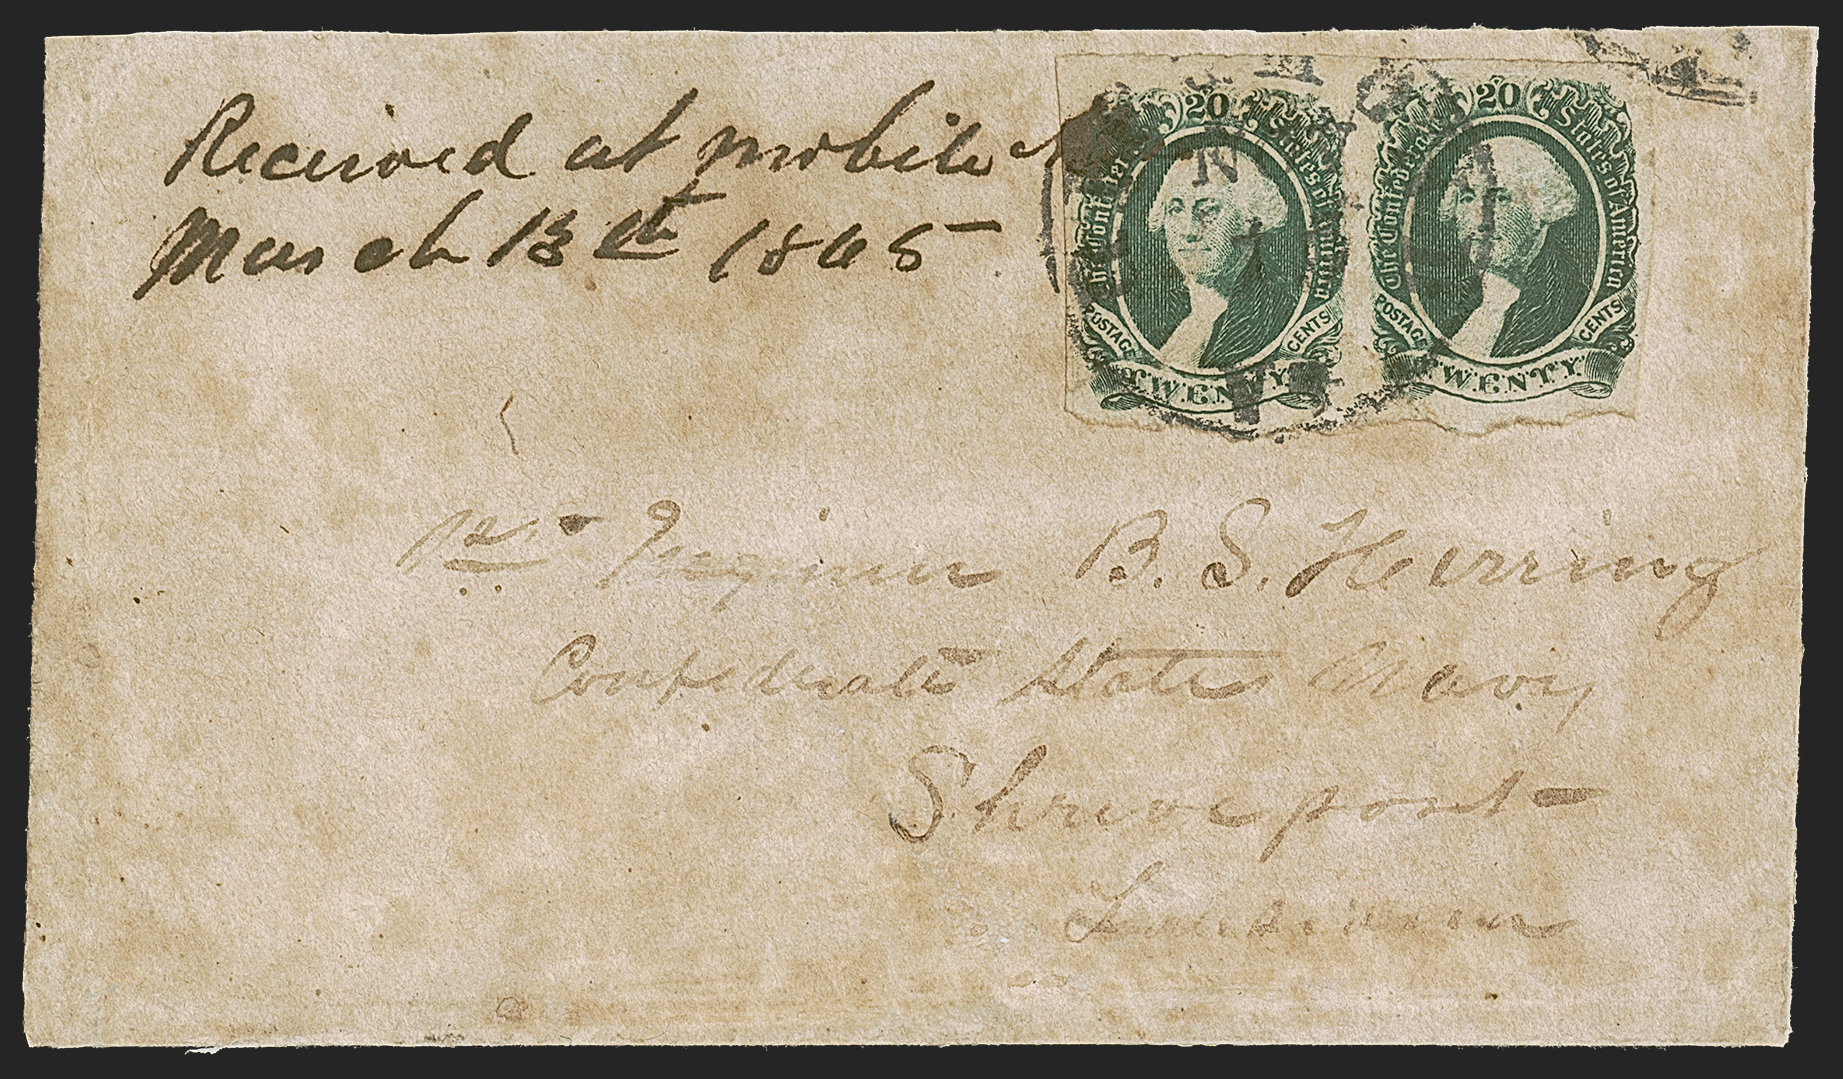 Received at mobile
March 13th 1865
20
The Confederate States of America
POSTAGE
CENTS
TWENTY
20
The Confederate States of America
POSTAGE
CENTS
TWENTY
B. S. Herring
Confederate States Navy
Shreveport
Louisiana